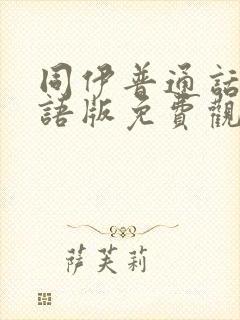 同伊普通話
語版免費觀
萨芙莉